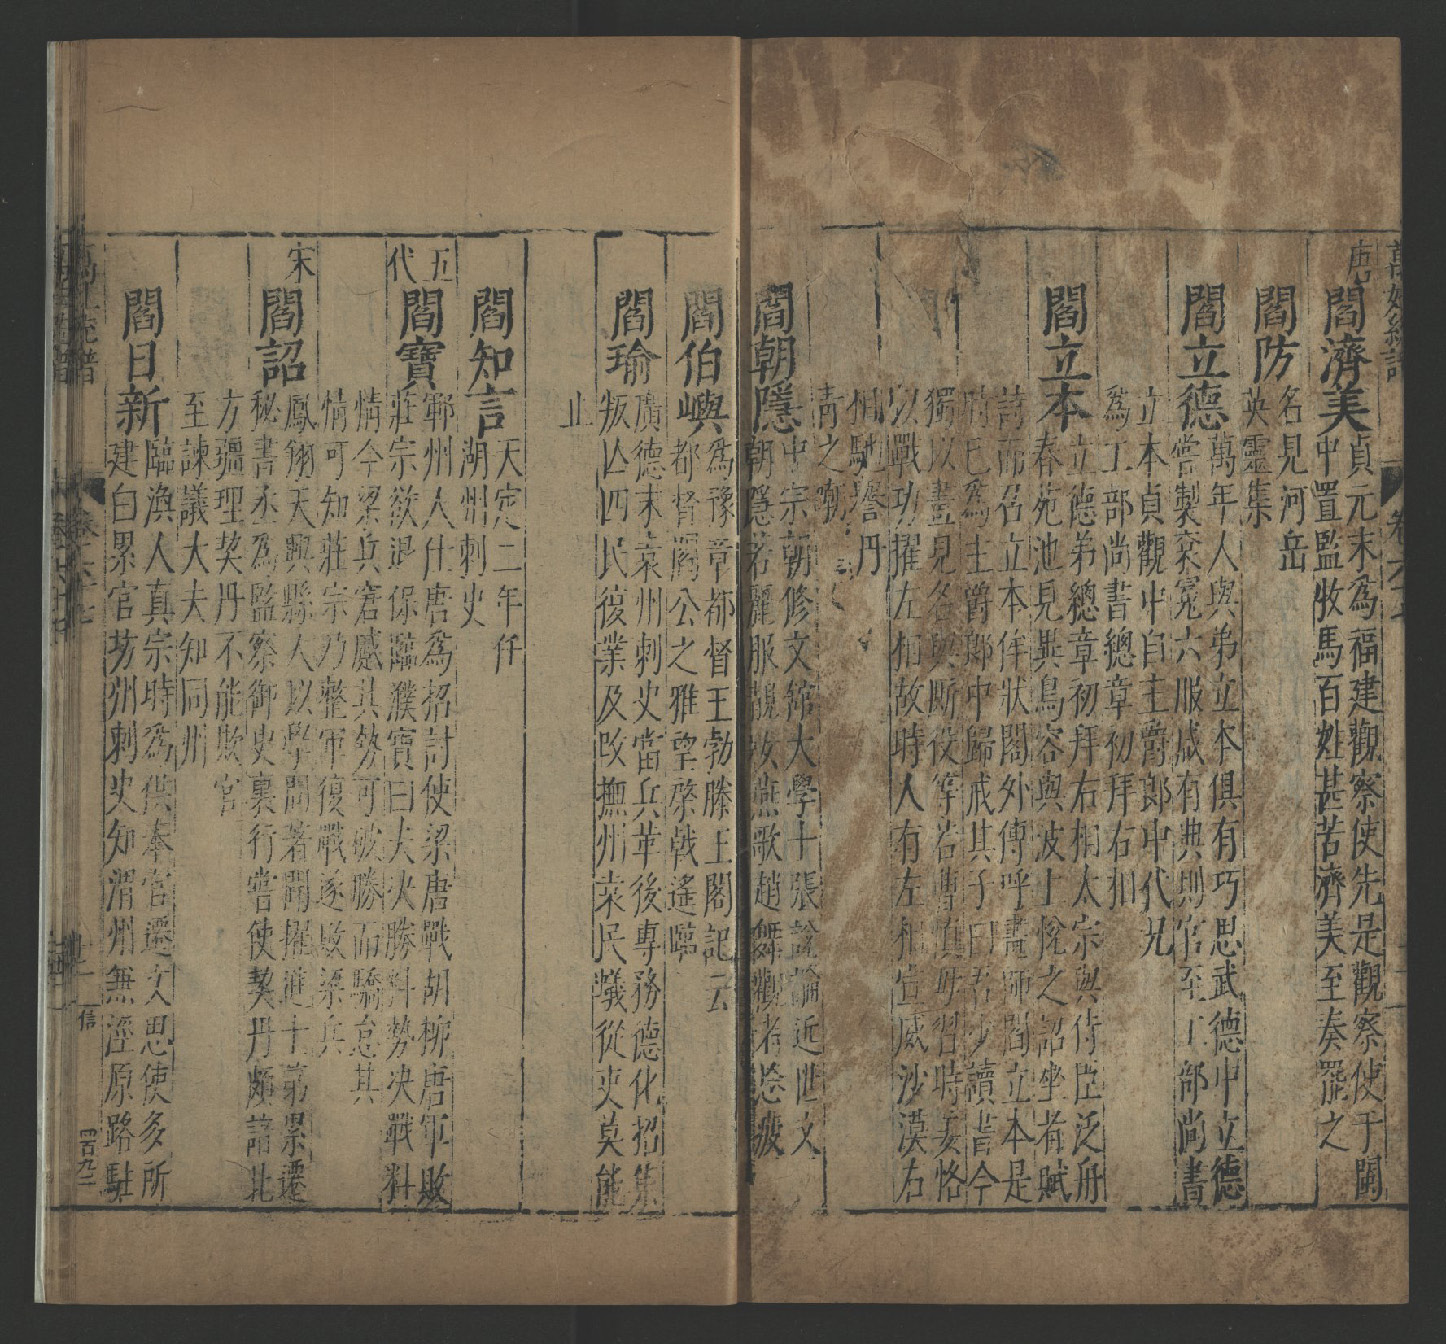 萬姓統譜
卷六十七
唐
閻濟美
貞元末為福建觀察使先是觀察使于闐
中置監牧馬百姓甚苦濟美至奏罷之
閻防
名見河岳
英靈集
閻立德
萬年人與弟立本俱有巧思武德中立德
嘗製袞冕六服咸有典則官至工部尚書
立本貞觀中自主爵郎中代兄
為工部尚書總章初拜右相
閻立本
立德弟總章初拜右相太宗與侍臣泛舟
春苑池見異鳥容與波上悅之詔坐者賦
詩而召立本侔狀閣外傳呼畫師閻立本是
時已為主爵郎中歸戒其子曰吾少讀書今
獨以畫見名與厮役等若曹慎毋習時姜恪
以戰功擢左相故時人有左相宣威沙漠右
相馳譽丹
青之嘲
閻朝隱
中宗朝修文館大學士張說論近世文
朝隱若麗服靚妝燕歌趙舞觀者忘疲
閻伯嶼
為豫章都督王勃滕王閣記云
都督閻公之雅望棨戟遙臨
閻瑜
廣德末袁州刺史當兵革後專務德化招集
叛亾四民復業及改撫州袁民蟻從吏莫能
止
閻知言
天寶二年任
湖州刺史
五代
閻寶
鄆州人仕唐為招討使梁唐戰胡柳唐軍敗
莊宗欲退保臨濮寶曰夫决勝料勢决戰料
情今梁兵窘蹙其勢可破勝而驕怠其
情可知莊宗乃整軍復戰遂敗梁兵
宋
閻詔
鳳翔天興縣人以學聞著聞擢進士第累遷
秘書丞為監察御史裏行嘗使契丹頗諳北
方疆理契丹不能欺官
至諫議大夫知同州
閻日新
臨渙人真宗時為供奉官遷文思使多所
建白累官坊州刺史知渭州無涇原路駐
信
四百九二